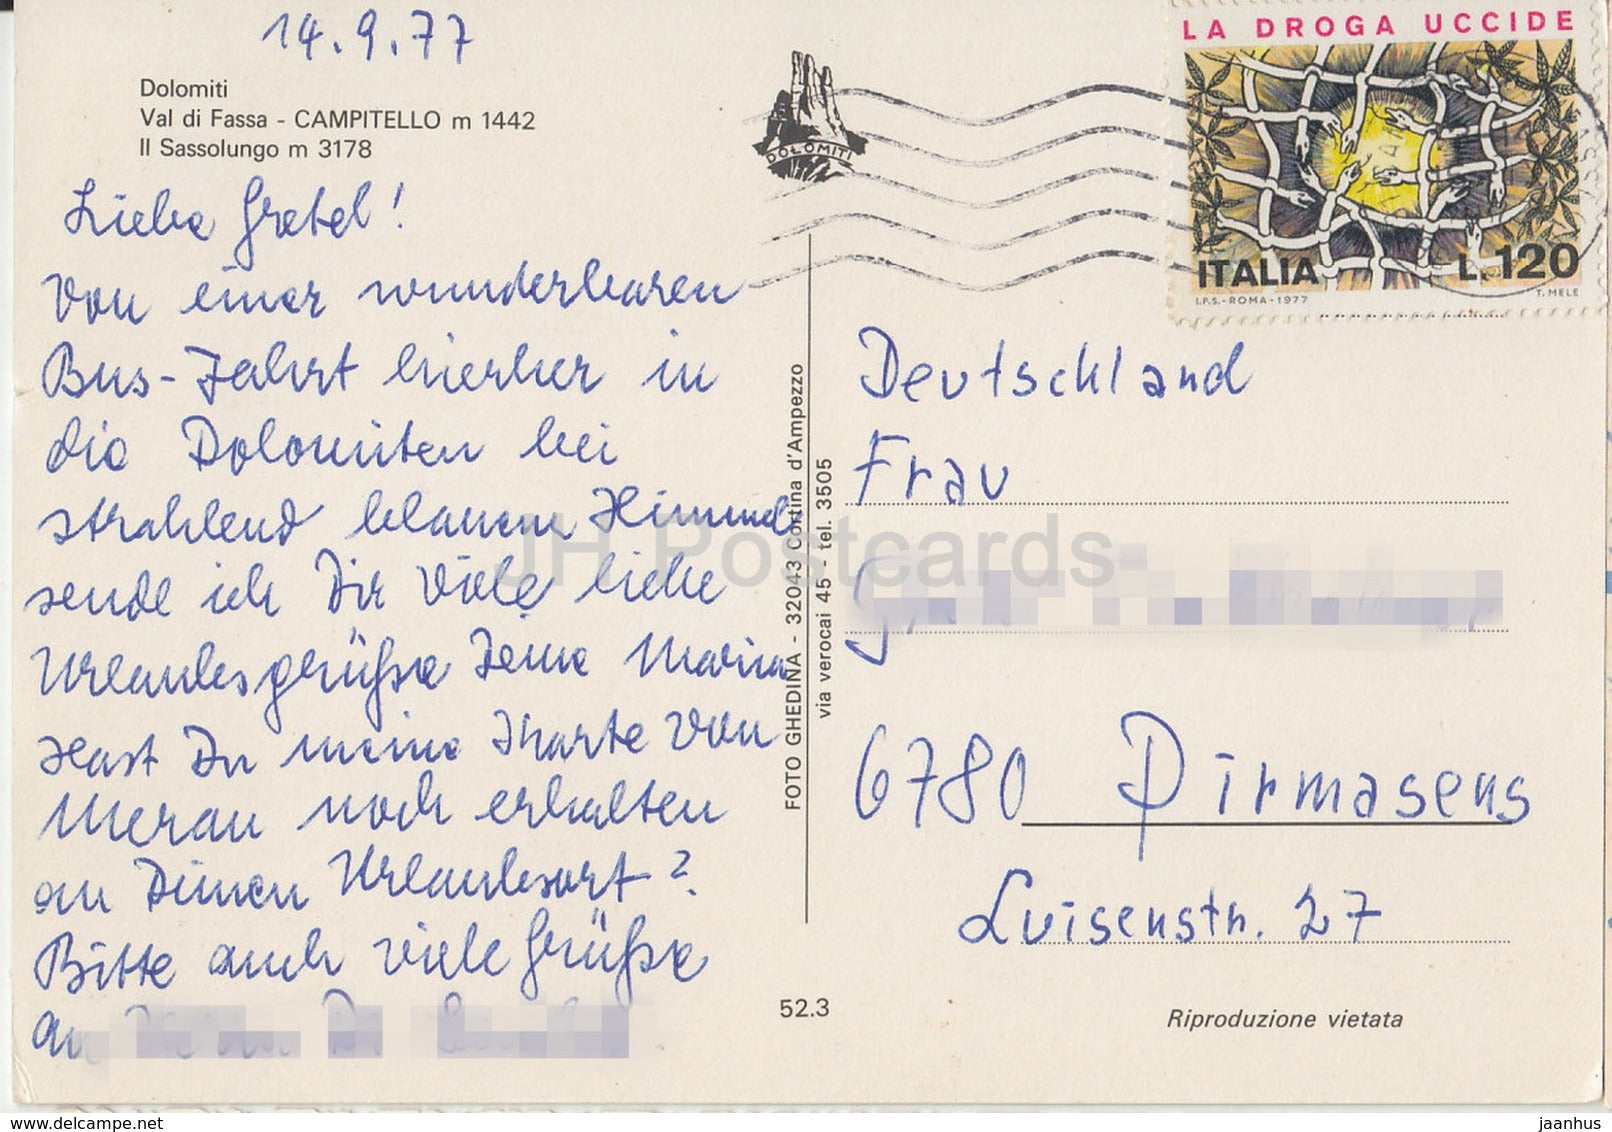 14.9.77
Dolomiti
Val di Fassa - CAMPITELLO m 1442
Il Sassolungo m 3178
Liebe Gretel!
Von einer wunderbaren
Bus-Fahrt hierher in
die Dolomiten bei
strahlend blauem Himmel
sende ich Dir viele liebe
Urlaubsgrüße Deine Maria
Hast Du meine Karte von
Meran noch erhalten
an Deinen Urlaubsort?
Bitte auch viele Grüße
an
DOLOMITI
FOTO GHEDINA - 32043 Cortina d'Ampezzo
via verocai 45 - tel. 3505
52.3
LA DROGA UCCIDE
ITALIA L. 120
I.P.S.-ROMA-1977 T. MELE
Deutschland
Frau
6780 Pirmasens
Luisenstr. 27
Riproduzione vietata
JH Postcards
www.delcampe.net
jaanhus